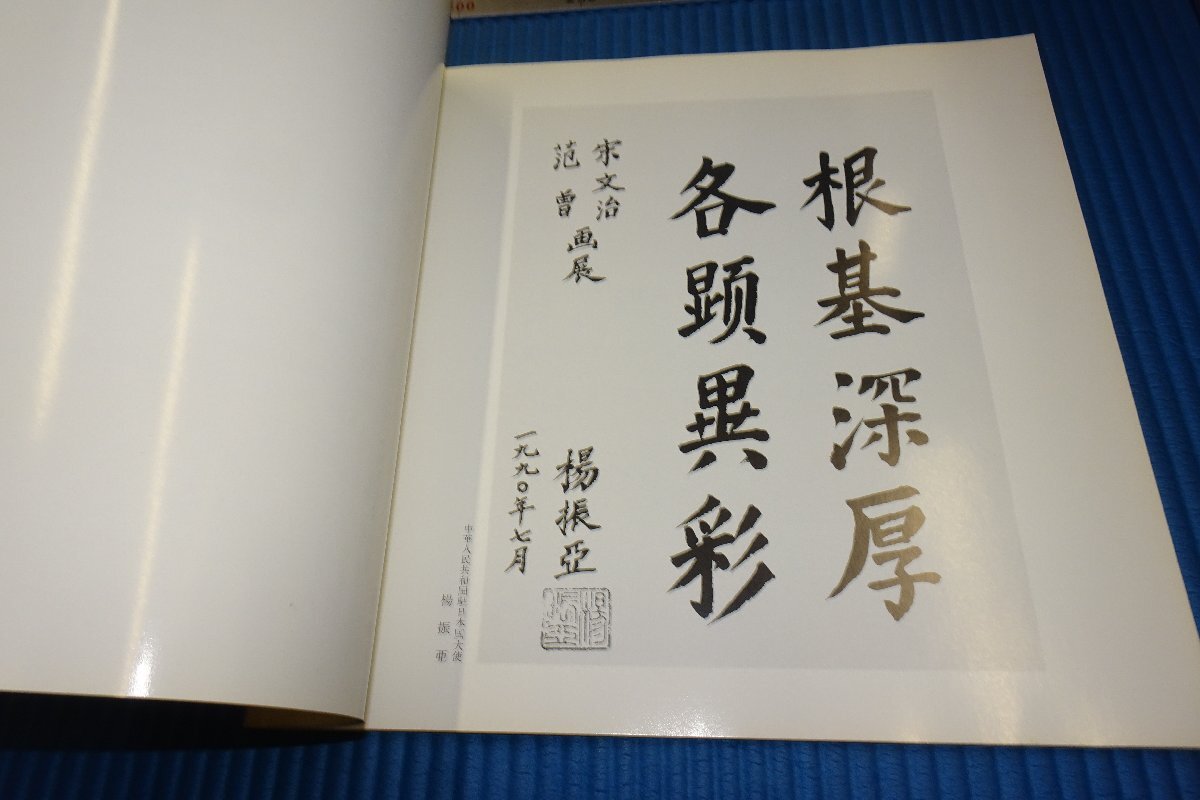 根基深厚
各顕異彩
宋文治
范曾
画展
楊振亞
一九九〇年七月
中華人民共和国駐日本国大使
楊振亜
00